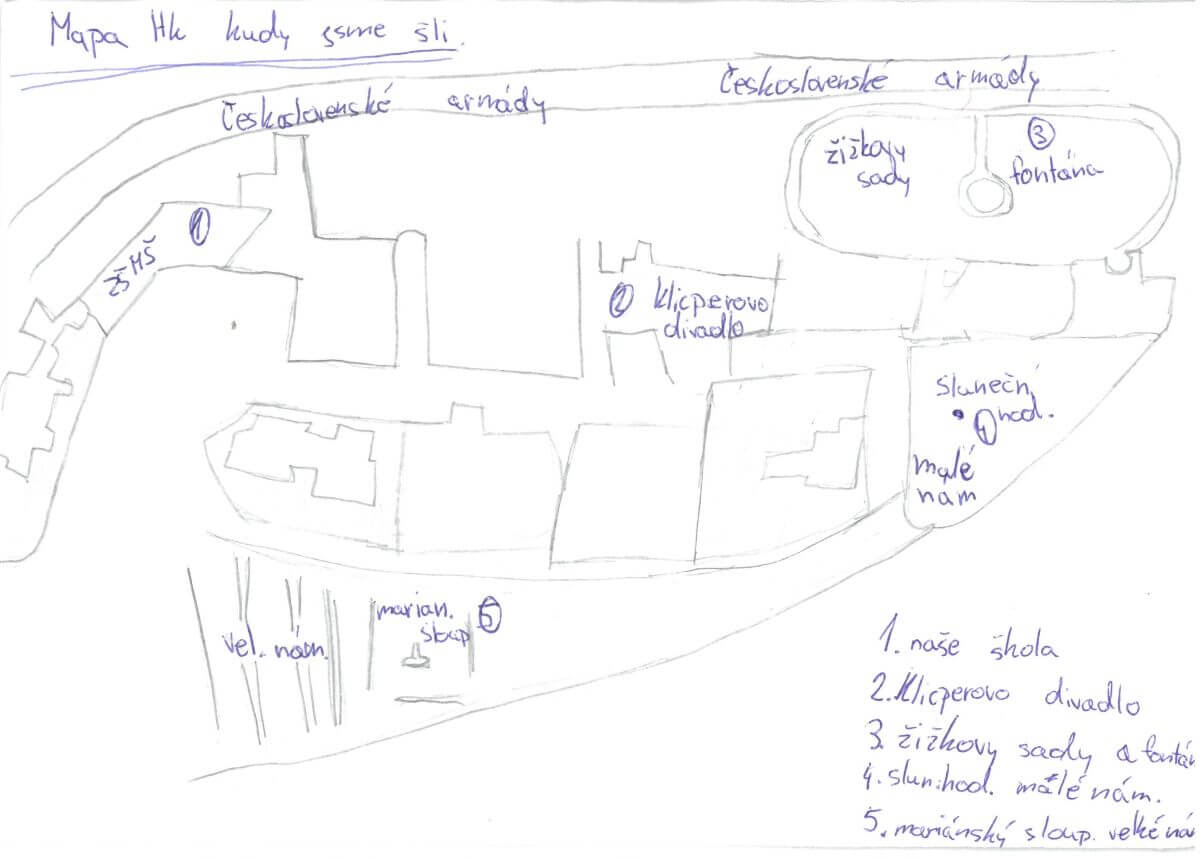 Mapa Hk kudy jsme šli.
Československé armády
Československé armády
žižkovy
sady
3
fontána
1
ZŠ MŠ
2 Klicperovo
divadlo
sluneční
hod.
4
malé
nám
marian. 5
sloup
vel. nám.
1. naše škola
2. Klicperovo divadlo
3. žižkovy sady a fontán
4. slun. hod. malé nám.
5. mariánský sloup. velké ná